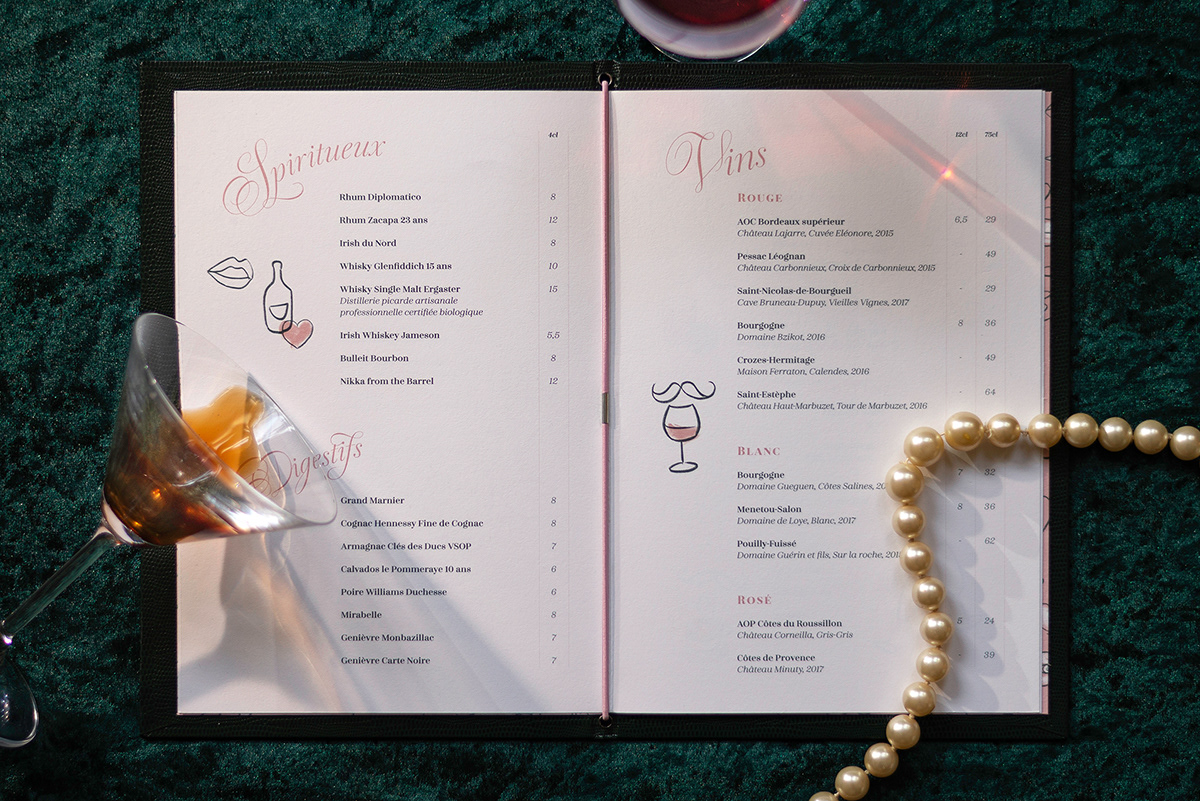 Spiritueux
4cl
Rhum Diplomatico 8
Rhum Zacapa 23 ans 12
Irish du Nord 8
Whisky Glenfiddich 15 ans 10
Whisky Single Malt Ergaster 15
Distillerie picarde artisanale
professionnelle certifiée biologique
Irish Whiskey Jameson 5,5
Bulleit Bourbon 8
Nikka from the Barrel 12
Digestifs
Grand Marnier 8
Cognac Hennessy Fine de Cognac 8
Armagnac Clés des Ducs VSOP 7
Calvados le Pommeraye 10 ans 6
Poire Williams Duchesse 6
Mirabelle 8
Genièvre Monbazillac 7
Genièvre Carte Noire 7
Vins
12cl 75cl
ROUGE
AOC Bordeaux supérieur 6,5 29
Château Lajarre, Cuvée Eléonore, 2015
Pessac Léognan - 49
Château Carbonnieux, Croix de Carbonnieux, 2015
Saint-Nicolas-de-Bourgueil - 29
Cave Bruneau-Dupuy, Vieilles Vignes, 2017
Bourgogne 8 36
Domaine Bzikot, 2016
Crozes-Hermitage - 49
Maison Ferraton, Calendes, 2016
Saint-Estèphe - 64
Château Haut-Marbuzet, Tour de Marbuzet, 2016
BLANC
Bourgogne 7 32
Domaine Gueguen, Côtes Salines,
Menetou-Salon 8 36
Domaine de Loye, Blanc, 2017
Pouilly-Fuissé - 62
Domaine Guérin et fils, Sur la roche,
ROSÉ
AOP Côtes du Roussillon 5 24
Château Corneilla, Gris-Gris
Côtes de Provence - 39
Château Minuty, 2017